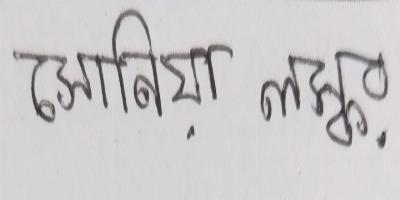 সোনিয়া লস্কর